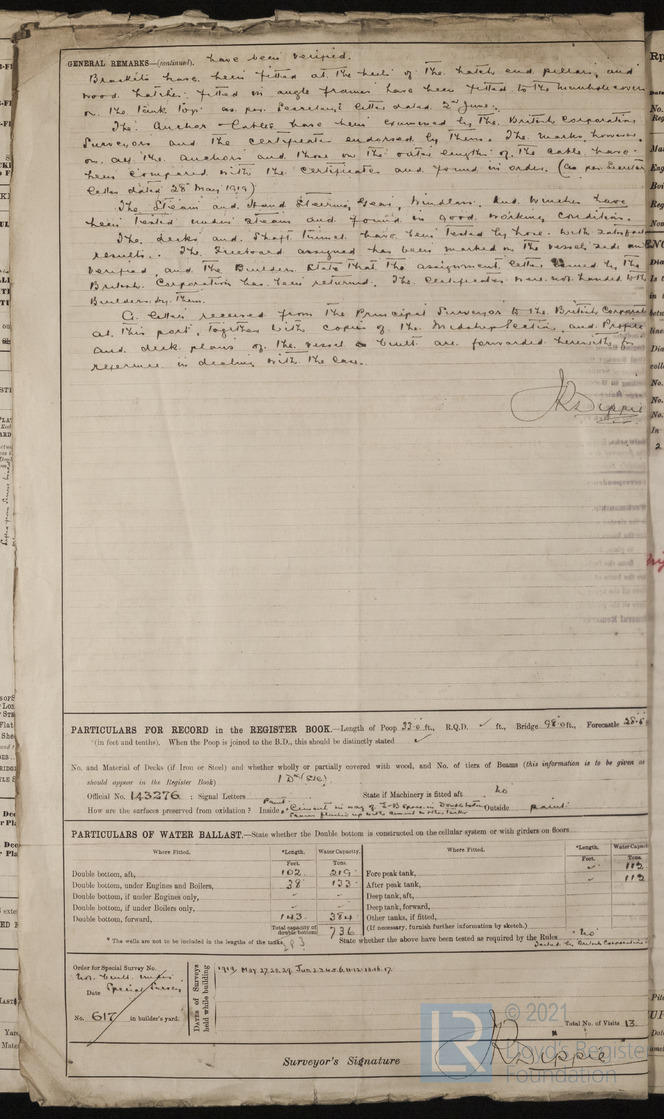 GENERAL REMARKS—(continued). have been verified.
Brackets have been fitted at the heels of the hatch end pillars, and
wood hatches fitted in angle frames have been fitted to the manhole covers
on the tank top as per Secretary's letter dated 2nd June.
The Anchor & Cables have been examined by the British Corporation
Surveyors and the certificates endorsed by them. The marks, however,
on all the anchors and those on the outer lengths of the cable have
been compared with the certificates and found in order. (as per
letter dated 28th May 1919)
The Steam and Hand Steering Gear, Windlass and Winches have
been tested under steam and found in good working condition.
The decks and Shaft tunnel have been tested by hose with
results. The freeboard assigned has been marked on the vessel's side and
verified, and the Builders state that the assignment letter issued by the
British Corporation has been returned. The certificates were not handed to the
Builders by them.
A letter received from the Principal Surveyor to the British
at this port, together with copies of the Midship Section, and Profile
and deck plans of the vessel as built are forwarded herewith for
reference in dealing with the case.
JR Dippie
PARTICULARS FOR RECORD in the REGISTER BOOK.—Length of Poop 33.0 ft., R.Q.D. ✓ ft., Bridge 98.0 ft., Forecastle 28.6
(in feet and tenths). When the Poop is joined to the B.D., this should be distinctly stated ✓
No. and Material of Decks (if Iron or Steel) and whether wholly or partially covered with wood, and No. of tiers of Beams (this information is to be given as
should appear in the Register Book) 1 Dk (Stl)
Official No. 143276 ; Signal Letters State if Machinery is fitted aft no
How are the surfaces preserved from oxidation? Inside Paint & Cement in way of Outside paint
PARTICULARS OF WATER BALLAST.—State whether the Double bottom is constructed on the cellular system or with girders on floors
Where Fitted. *Length. Water Capacity. Where Fitted. *Length. Water Capacity
Feet. Tons. Feet. Tons.
Double bottom, aft, 102 219 Fore peak tank, 112
Double bottom, under Engines and Boilers, 38 133 After peak tank, 112
Double bottom, if under Engines only, Deep tank, aft,
Double bottom, if under Boilers only, Deep tank, forward,
Double bottom, forward, 143 384 Other tanks, if fitted,
Total capacity of double bottom 736 (If necessary, furnish further information by sketch.)
* The wells are not to be included in the lengths of the tanks. State whether the above have been tested as required by the Rules no
Tested by British Corporation
Order for Special Survey No.
Not built under
Special Survey
Date
No. 617 in builder's yard.
Dates of Surveys held while building
1919 May 27.28.29. Jun 2.3.4.5.6.11.12.13.16.17.
Total No. of Visits 13
Surveyor's Signature JR Dippie
© 2021
LR
Lloyd's Register
Foundation